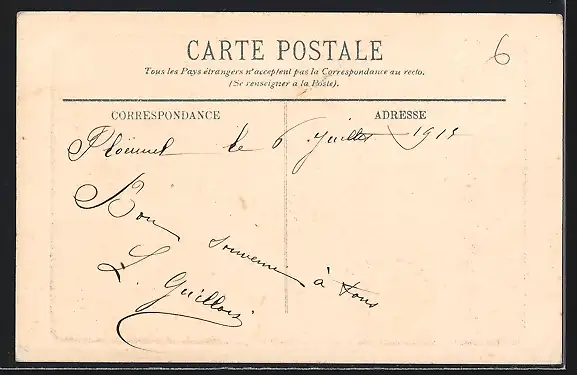 CARTE POSTALE
6
Tous les Pays étrangers n'acceptent pas la Correspondance au recto.
(Se renseigner à la Poste).
CORRESPONDANCE
ADRESSE
Ploërmel le 6 Juillet 1915
Bon souvenir à tous
L. Guillois